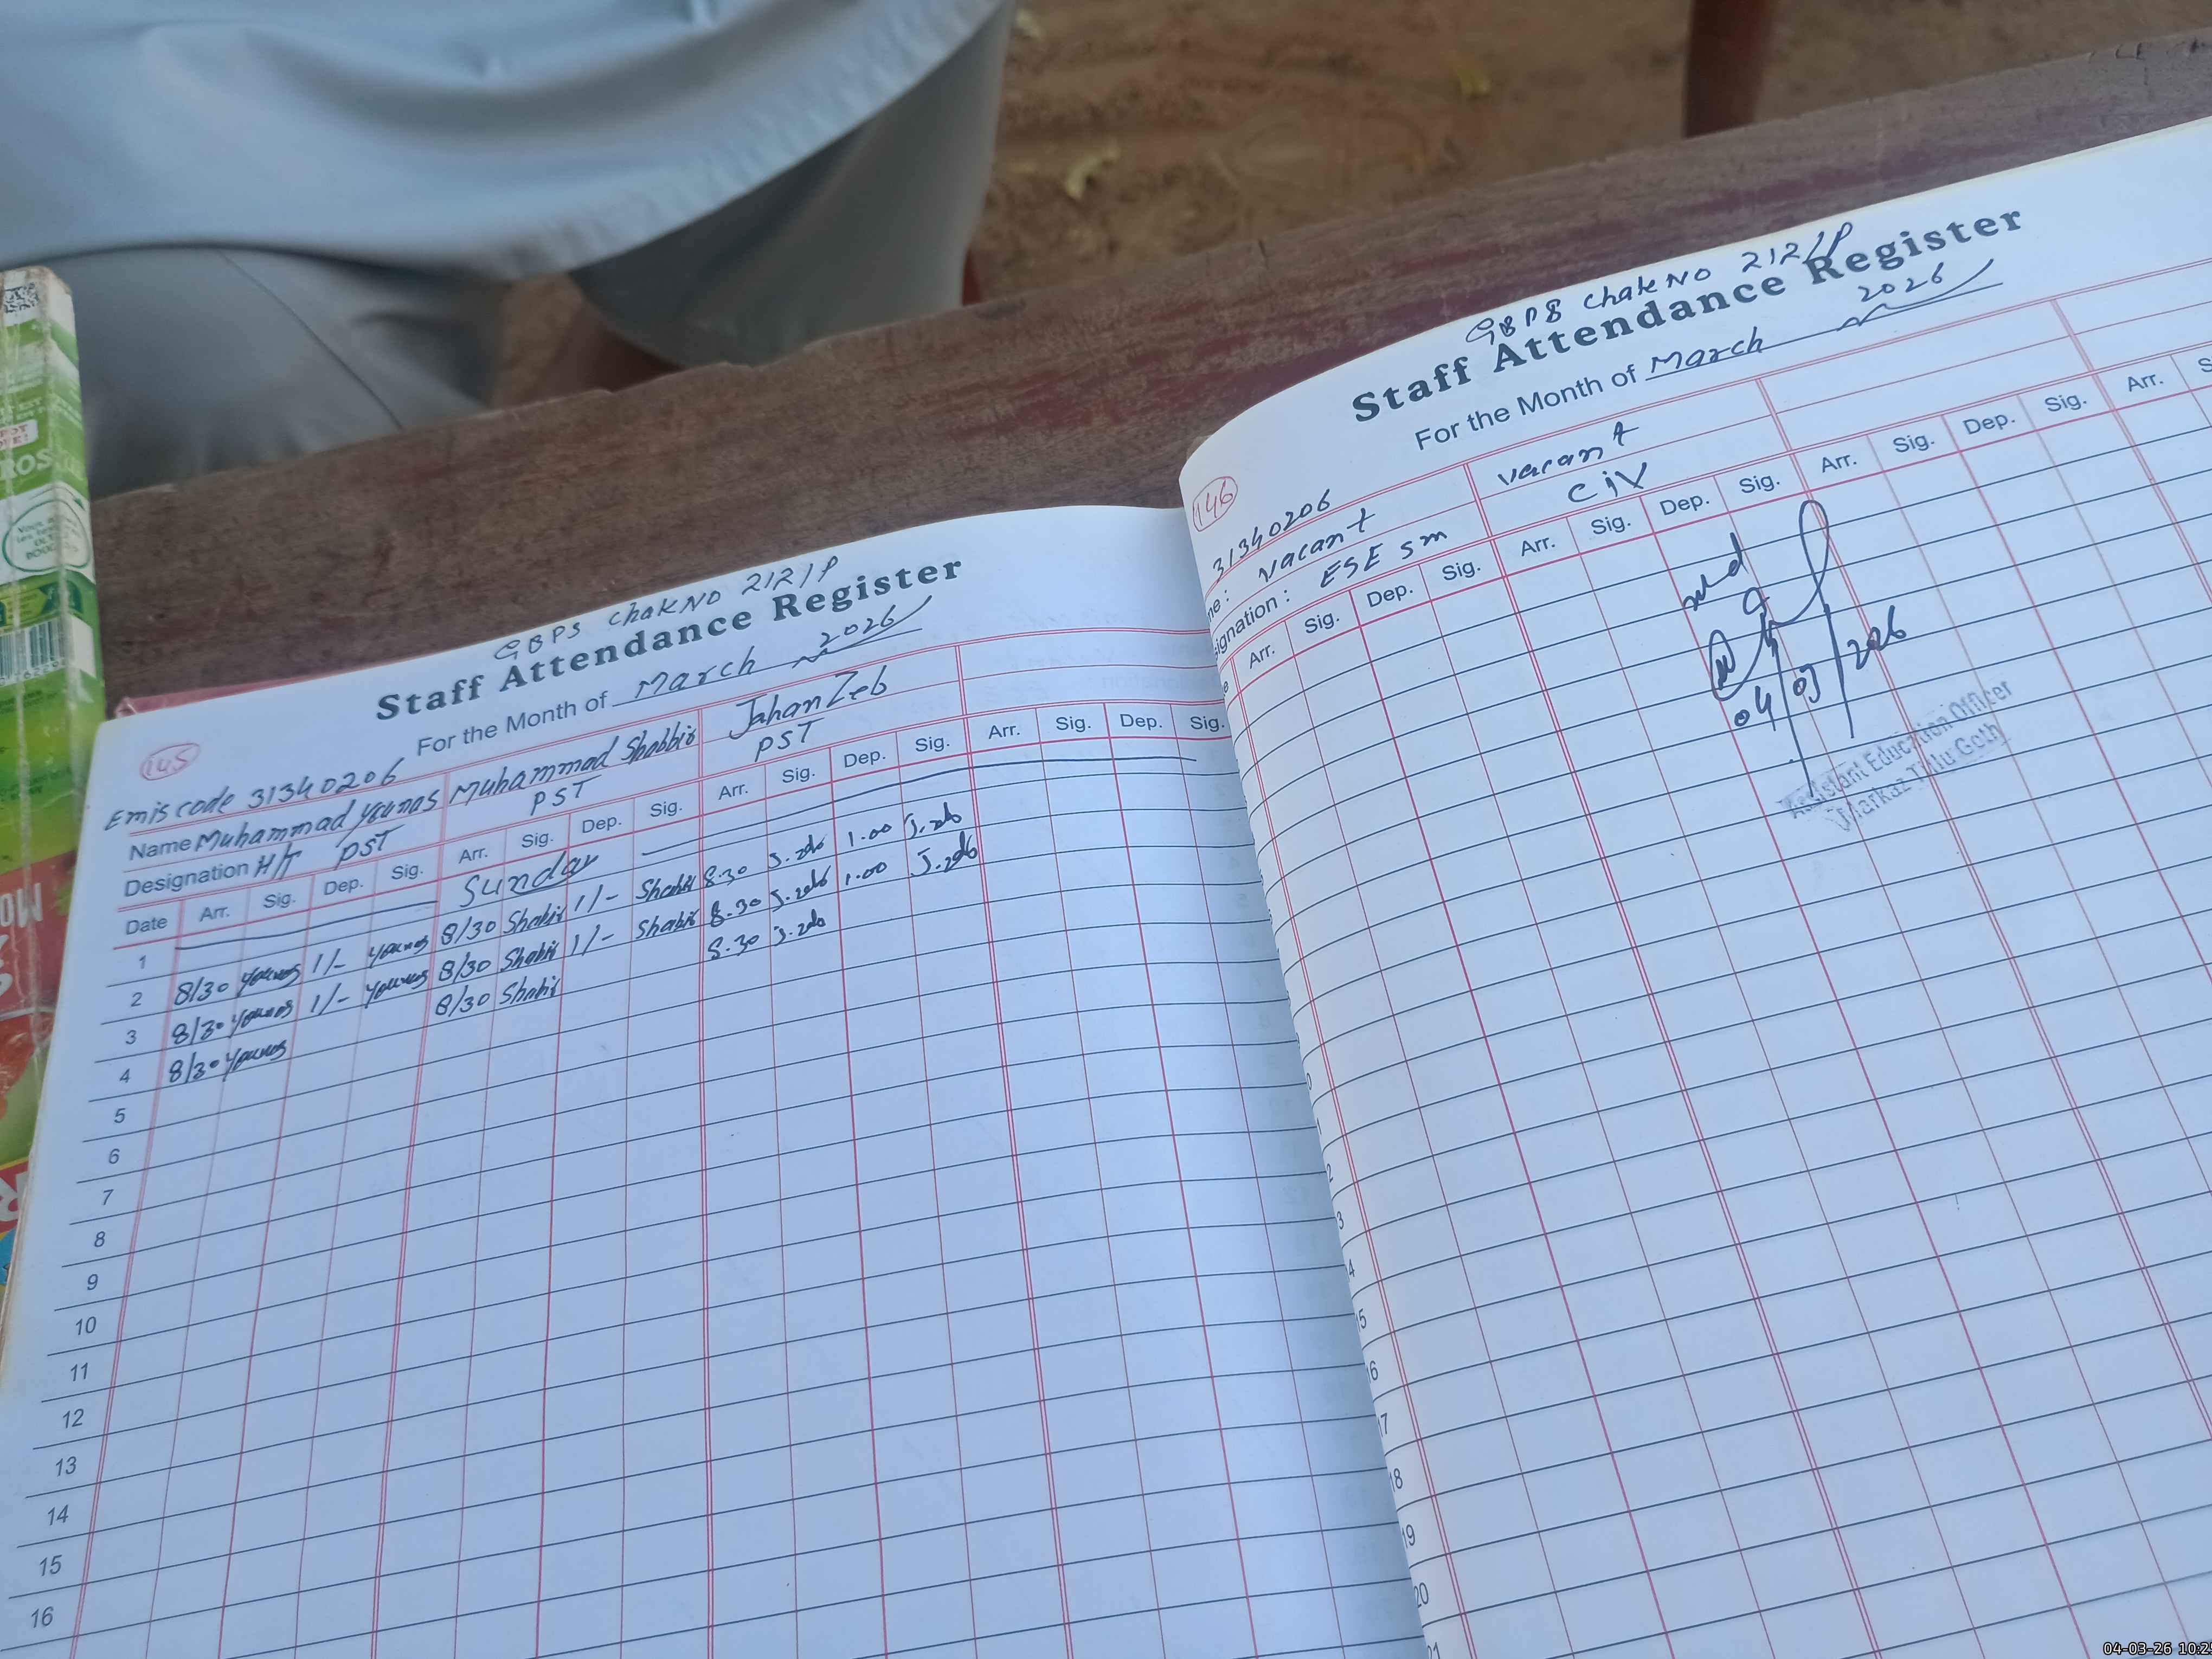 GBPS chakNO 212/P
Staff Attendance Register
For the Month of March 2026
145
Emis code 31340206
Name Muhammad Younas Muhammad Shabbir JahanZeb
Designation H/T PST PST PST
Date Arr. Sig. Dep. Sig. Arr. Sig. Dep. Sig. Arr. Sig. Dep. Sig. Arr. Sig. Dep. Sig.
1 Sunday
2 8/30 Younas 1/- Younas 8/30 Shabir 1/- Shabir 8.30 J.zeb 1.00 J.zeb
3 8/30 Younas 1/- Younas 8/30 Shabir 1/- Shabir 8.30 J.zeb 1.00 J.zeb
4 8/30 Younas 8/30 Shabir 8.30 J.zeb
5
6
7
8
9
10
11
12
13
14
15
16
GBPS chakNO 212/P
Staff Attendance Register
For the Month of March 2026
146
31340206
me: vacant vacant
signation: ESE sm CIV
Arr. Sig. Dep. Sig. Arr. Sig. Dep. Sig. Arr. Sig. Dep. Sig. Arr.
04/03/2026
Assistant Education Officer
Markaz Tillu Goth
15
16
17
18
19
20
04-03-26 10:2